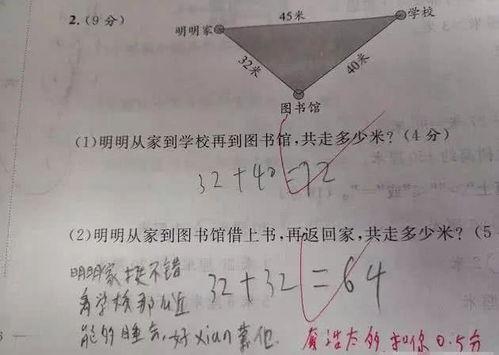 2.(9分)
45米
学校
明明家
32米
40米
图书馆
(1)明明从家到学校再到图书馆,共走多少米?(4分)
32+40=72
(2)明明从家到图书馆借上书,再返回家,共走多少米?(5
明明家挺不错
离学校那么近
32+32=64
能多睡会,好xian慕他.
有活太多扣你0.5分